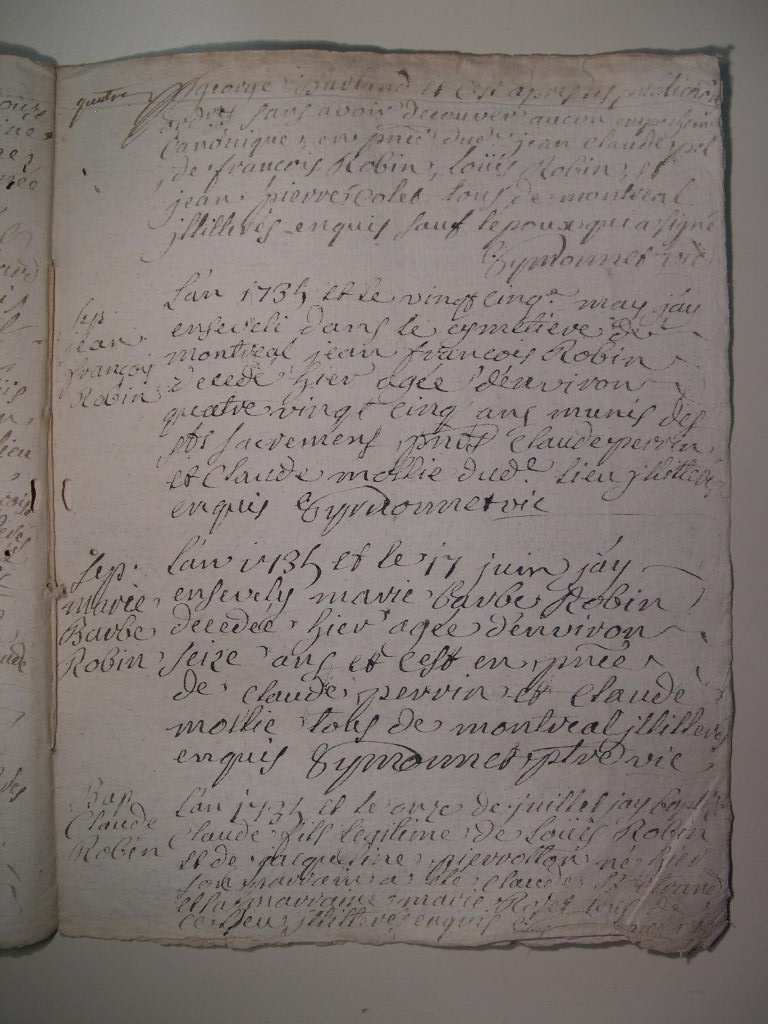 quatre
george et c'est apres les publications
sans avoir decouver aucun
Canonique, en pñce dud. jean claude
de francois Robin, loüis Robin, et
jean pierre Colet tous de montreal
jllitterés enquis sauf lepoux qui a signé
Symonnet vic
Sep.
jean
françois
Robin
L'an 1735 et le vingt cinqe. may jay
enseveli dans le cymetiere de
montreal jean francois Robin
decede hier agée d'environ
quatre vingt cinq ans munis des
sts sacremens, pñts Claude perrin,
et Claude mollie dude. lieu jllitteres
enquis Symonnet vic
Sep.
marie
Barbe
Robin
L'an 1735 et le 17 juin jay
ensevely marie barbe Robin
decedée hier agée d'environ
seize ans et c'est en pñce
de claude perrin et Claude
mollie tous de montreal jllitteres
enquis Symonnet ptre vic
Bap.
Claude
Robin
L'an 1735 et le onze de juillet jay baptisé
Claude fils legitime de loüis Robin
et de jacqueline pierrotton né hier
son parrain a ete claude
et la marraine marie tous de
ce lieu jllitteres enquis